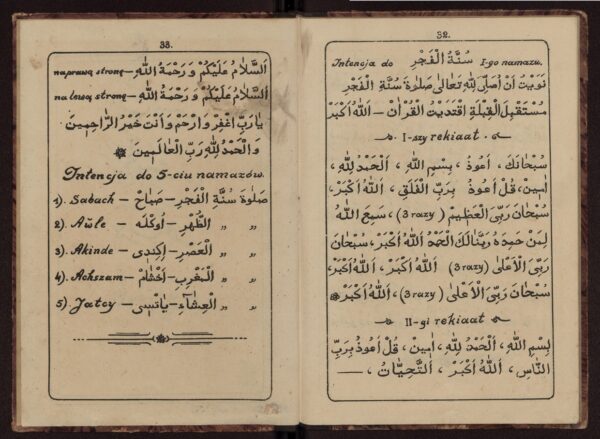 32.
Intencja do سُنَّةُ الْفَجْرِ I-go namazu.
نَوَيْتُ اَنْ اُصَلِّىَ لِلّٰهِ تَعَالٰى صَلٰوةَ سُنَّةِ الْفَجْرِ
مُسْتَقْبِلَ الْقِبْلَةِ اِقْتَدَيْتُ الْقُرْاٰنَ – اَللّٰهُ اَكْبَرُ
I-szy rekiaat
سُبْحَانَكَ ، اَعُوذُ ، بِسْمِ اللّٰهِ ، اَلْحَمْدُ لِلّٰهِ ،
اٰمِينْ، قُلْ اَعُوذُ بِرَبِّ الْفَلَقِ ، اَللّٰهُ اَكْبَرُ،
سُبْحَانَ رَبِّىَ الْعَظِيْمِ (3 razy) ، سَمِعَ اللّٰهُ
لِمَنْ حَمِدَهُ رَبَّنَا لَكَ الْحَمْدُ اَللّٰهُ اَكْبَرُ، سُبْحَانَ
رَبِّىَ الْاَعْلٰى (3 razy) اَللّٰهُ اَكْبَرُ ، اَللّٰهُ اَكْبَرُ،
سُبْحَانَ رَبِّىَ الْاَعْلٰى (3 razy)، اَللّٰهُ اَكْبَرُ
II-gi rekiaat
بِسْمِ اللّٰهِ ، اَلْحَمْدُ لِلّٰهِ ، اٰمِينْ ، قُلْ اَعُوذُ بِرَبِّ
النَّاسِ ، اَللّٰهُ اَكْبَرُ ، اَلتَّحِيَّاتُ ،
33.
na prawą stronę – اَلسَّلَامُ عَلَيْكُمْ وَ رَحْمَةُ اللّٰهِ
na lewą stronę – اَلسَّلَامُ عَلَيْكُمْ وَ رَحْمَةُ اللّٰهِ
يَا رَبِّ اغْفِرْ وَ ارْحَمْ وَ اَنْتَ خَيْرُ الرَّاحِمِينَ
وَ الْحَمْدُ لِلّٰهِ رَبِّ الْعَالَمِينَ
Intencja do 5-ciu namazów.
1). Sabach – صَبَاحْ – صَلٰوةَ سُنَّةِ الْفَجْرِ
2). Aŭle – اَوْكْلَه – الظُّهْرِ „ „
3). Akinde – اِكِنْدِى – الْعَصْرِ „ „
4). Achszam – اَخْشَامْ – الْمَغْرِبِ „ „
5) Jatcy – يَاتْسِى – الْعِشَاءِ „ „